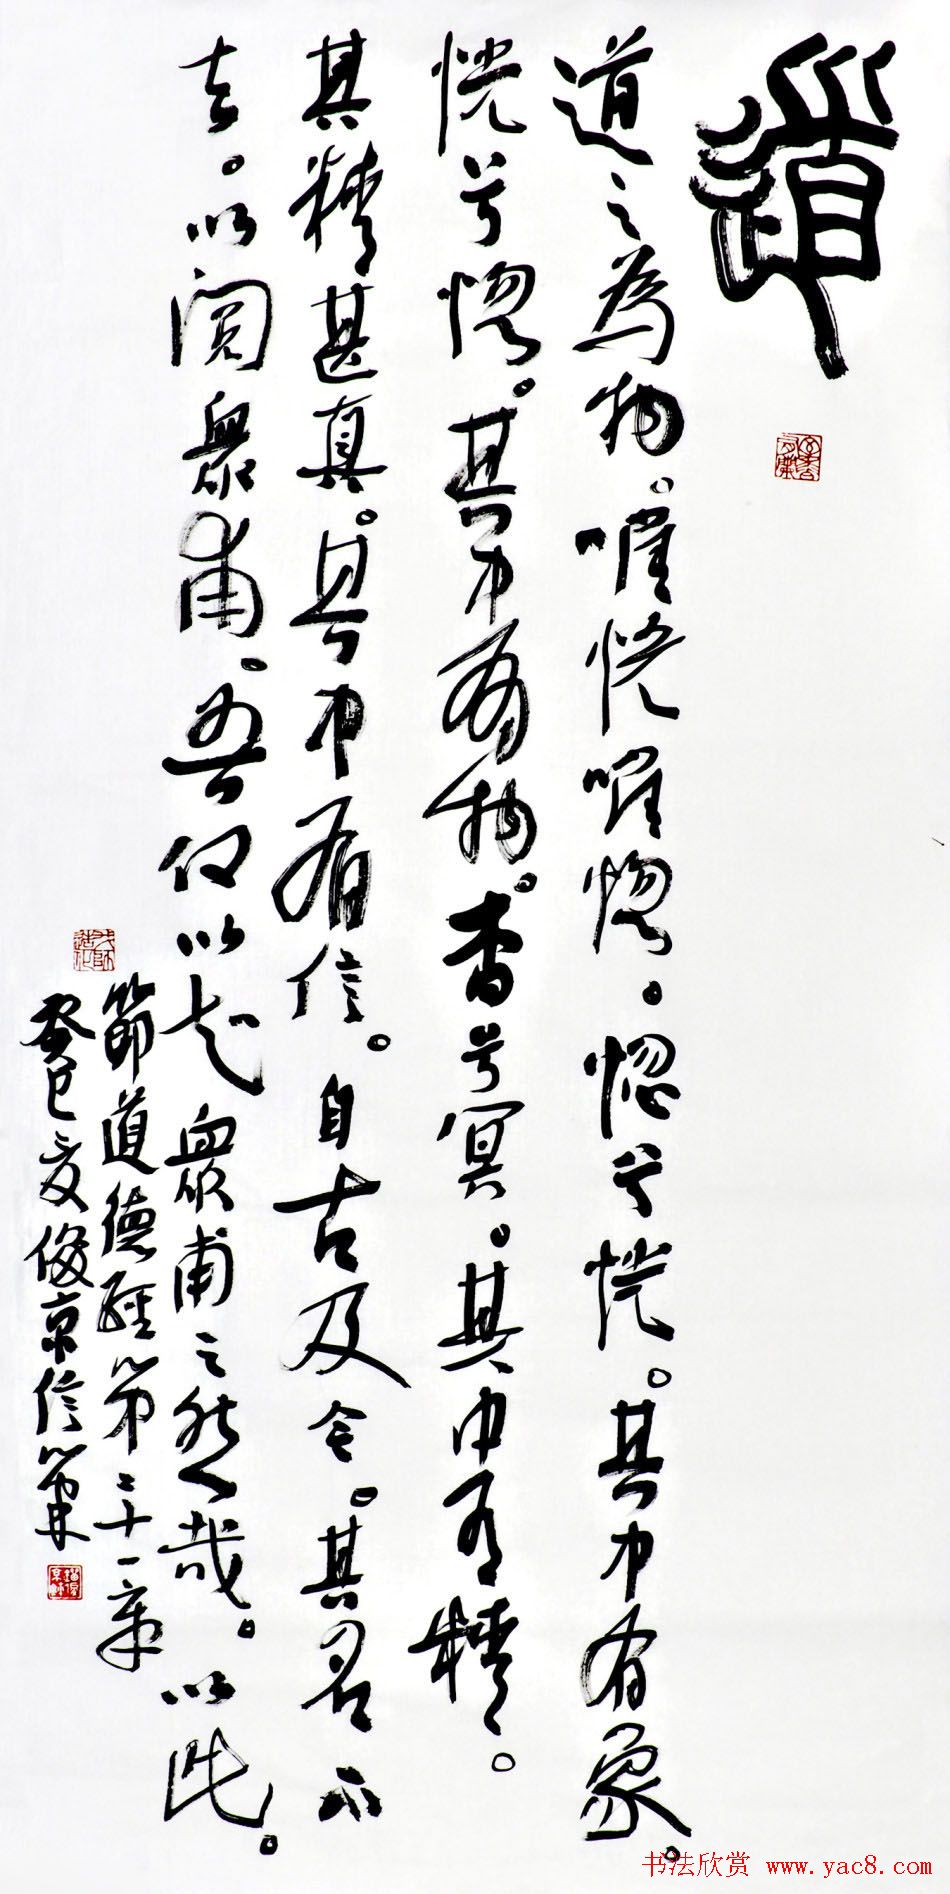 道
道之為物。唯恍唯惚。惚兮恍。其中有象。
恍兮惚。其中有物。杳兮冥。其中有精、。
其精甚真。其中有信。自古及今。其名不
去。以閱衆甫、吾何以知衆甫之然哉。以此。
節道德經第二十一章
癸巳夏俊京信筆
书法欣赏 www.yac8.com